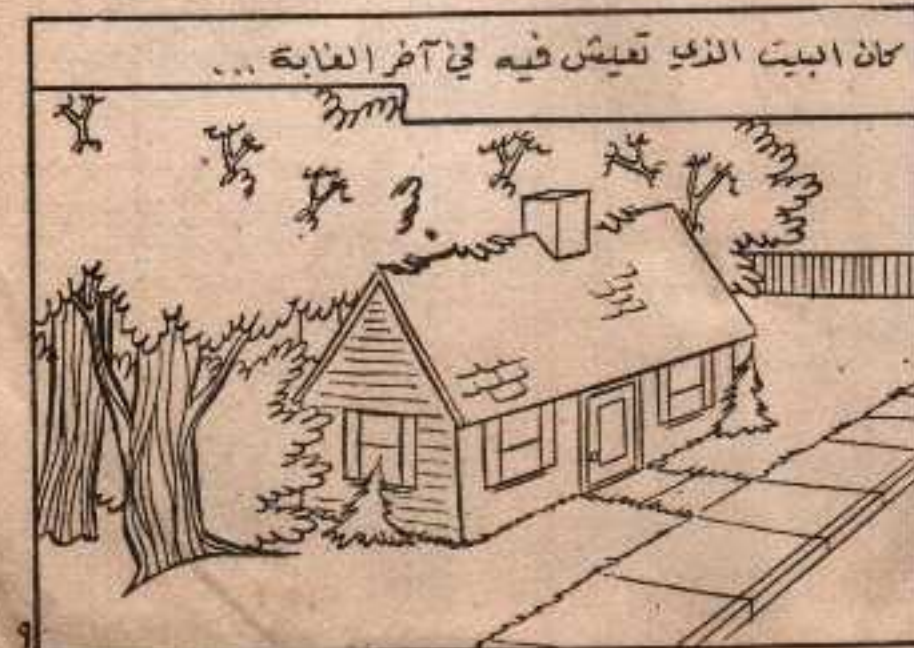 كان البيت الذي تعيش فيه في آخر الغابة ...
٩